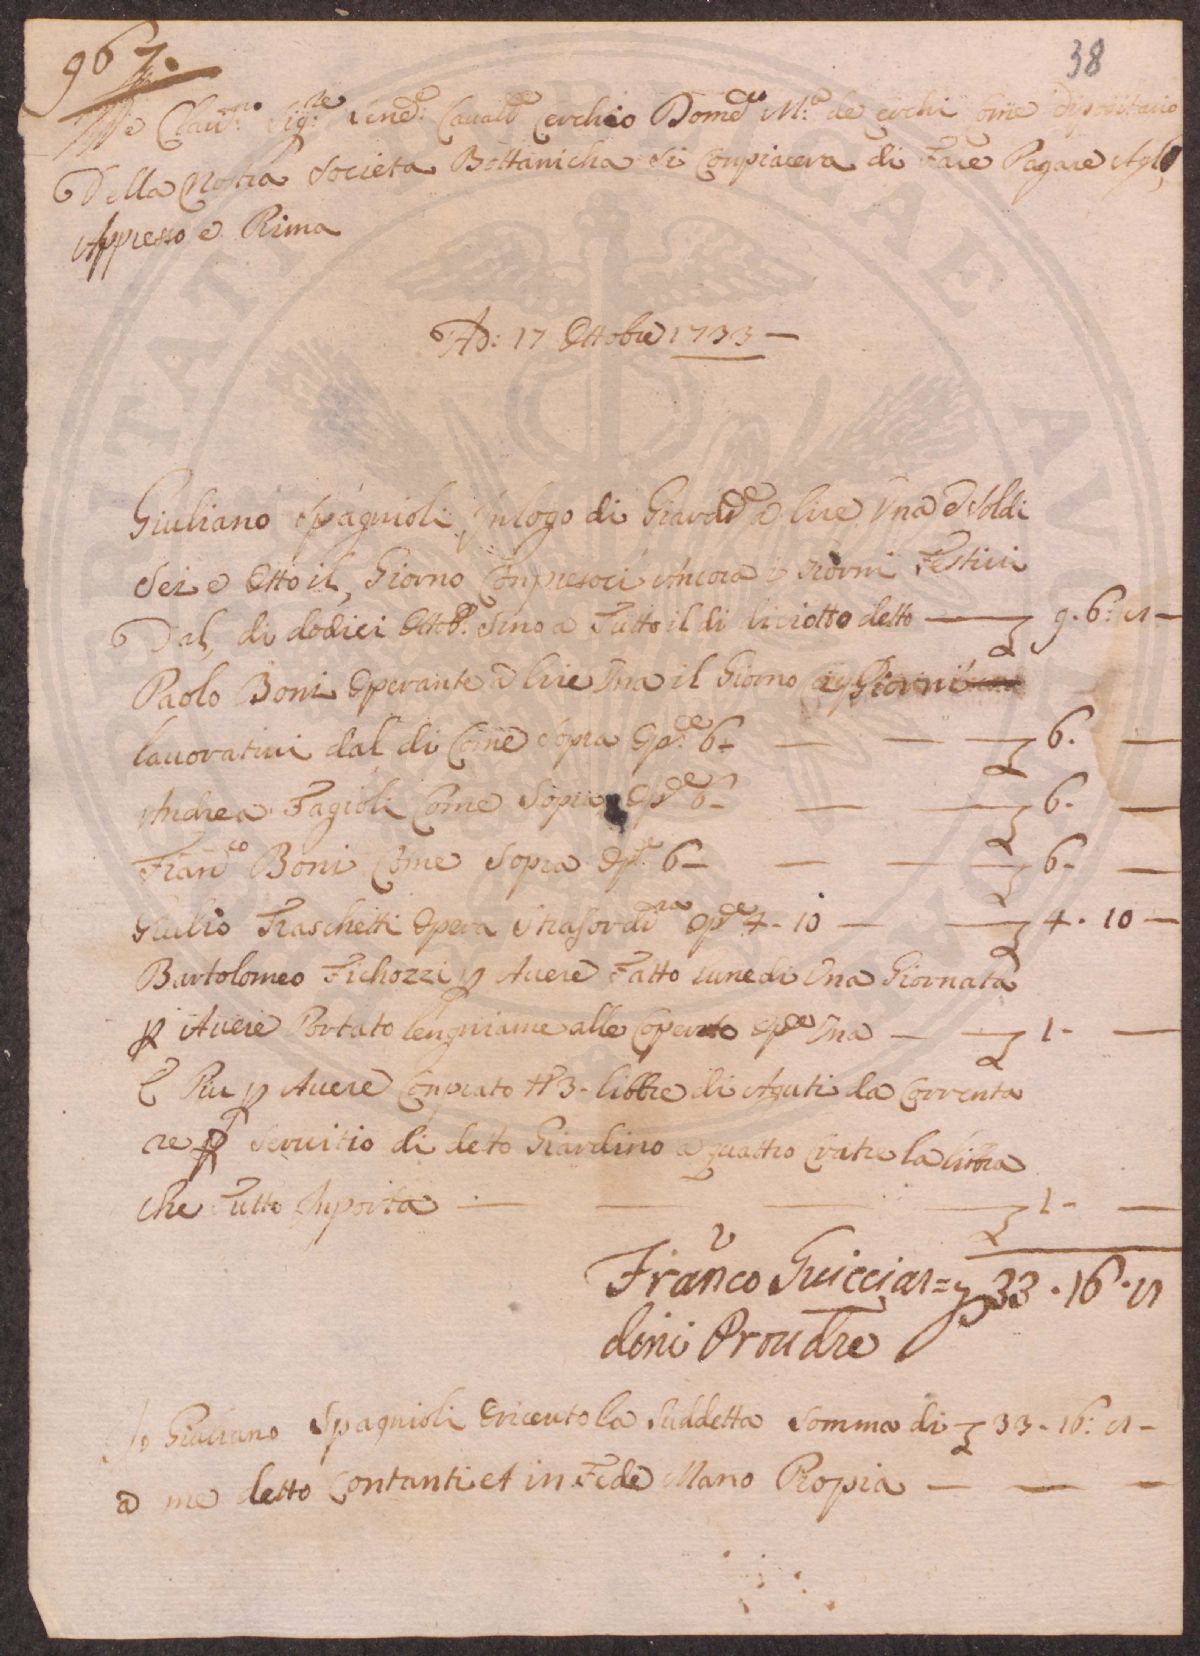 967.
38
Ill.e Clari.mo Sig.re Vene.d Cavall.e Cerchio Dom.co M.a de Cerchi Come Dipositario
Della Nostra Societa Bottanicha Si Conpiacera di Fare Pagare Agl,
Appresso e Rima
Ad: 17 Ottobre 1733 —
Giuliano Spagnioli in logo di Giard.e a lire Una e Soldi
Sei e Otto il, Giorno Conpresoci Ancora i Giorni Festivi
Dal, di dodici Ottob.e Sino a Tutto il di liciotto detto — 9. 6: 8 —
Paolo Boni Operante a lire Una il Giorno Giorni
lavorativi dal di Come Sopra Op.re 6 — — — 6. —
Andrea Fagioli Come Sopra Op.re 6 — — — 6. —
Fran.co Boni Come Sopra Op.e 6 — — — 6 — —
Giulio Fraschetti Opera Strasord.ria Op.re 4 - 10 — — 4. 10 —
Bartolomeo Fichozzi p Avere Fatto lunedi Una Giornata
p Avere Portato lengniame alle Coperto Op.re Una — — 1 — —
E Piu p Avere Conprato # 3 - libbre di Aguti da Correnta
re p Servitio di detto Giardino a quattro Cratie la libbra
che Tutto Inporta — — — — 1 — —
Franco Guicciar= 33. 16. 8
dini Proudre
Io Giuliano Spagnioli O ricevto la Suddetta Somma di 33 - 16: 8 —
a me detto Contanti et in Fede Mano Propia — — —